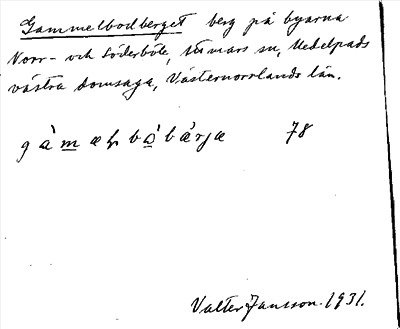 Gammelbodberget berg på byarna
Norr- och Söderböle, Timmars sn, Medelpads
västra domsaga, Västernorrlands län.
gàmæɫbòbæ̀rjæ 78
Valter Jansson. 1931.